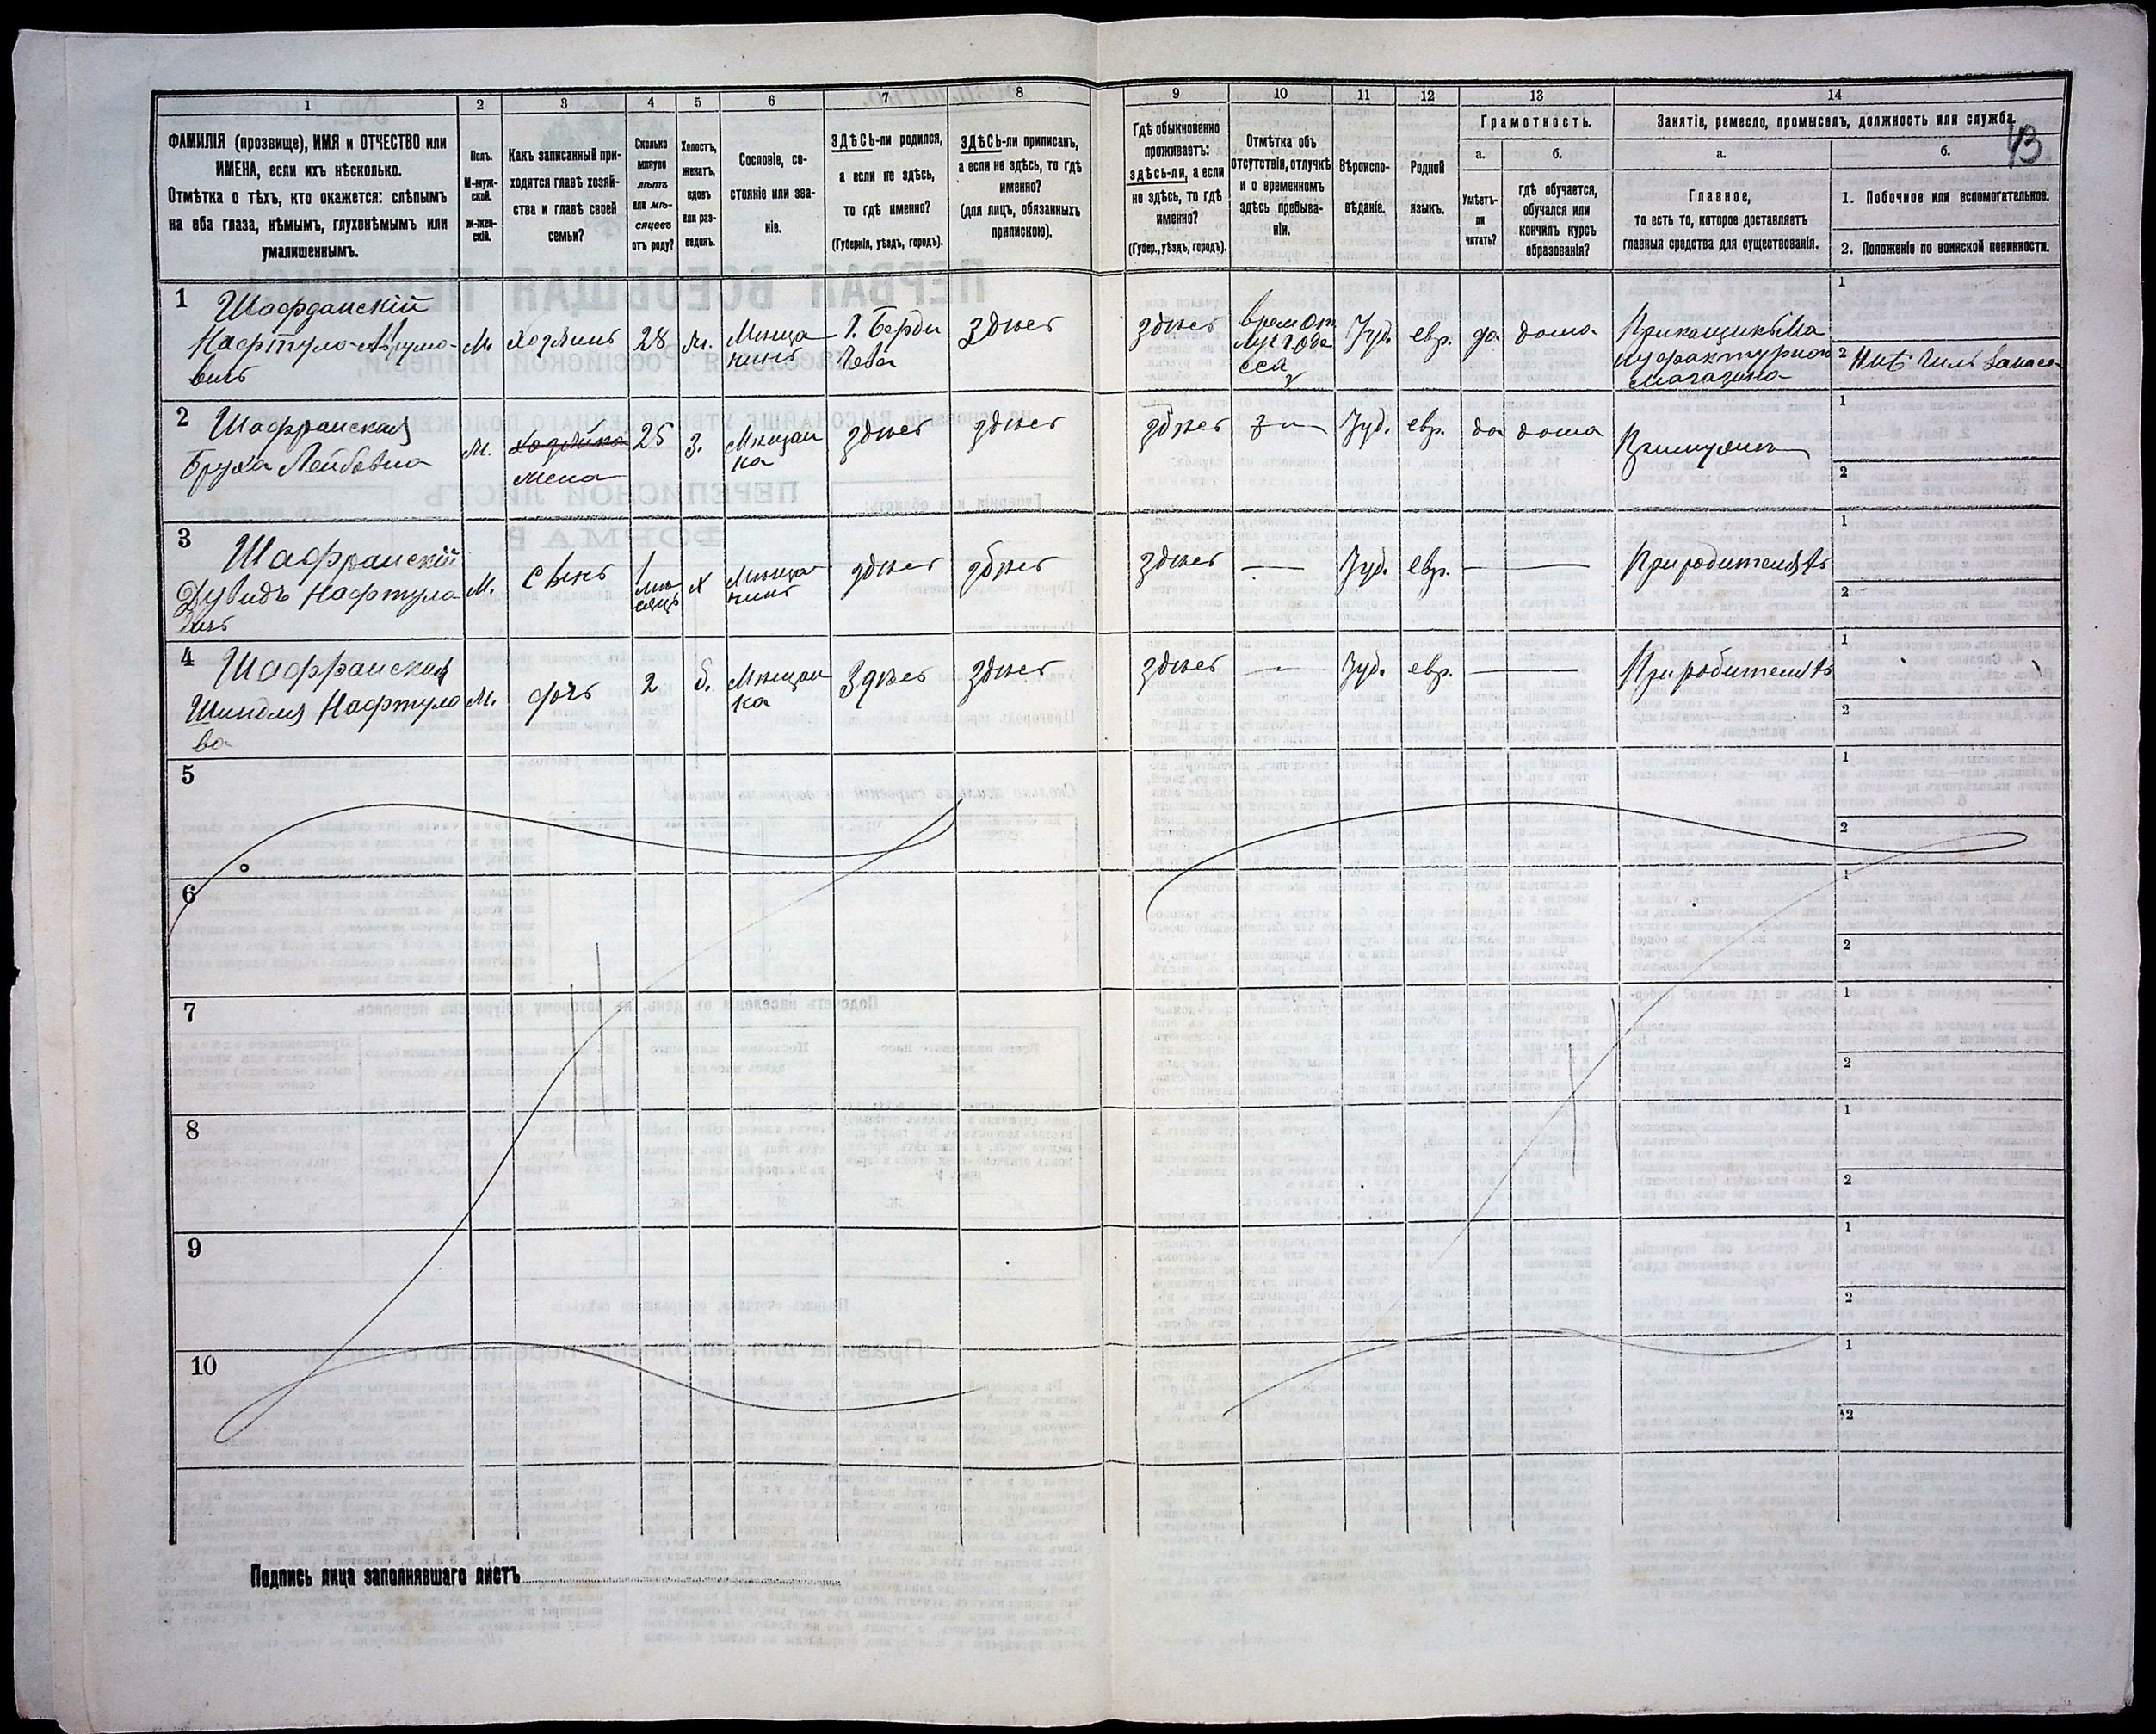 1 2 3 4 5 6 7 8 9 10 11 12 13 14
43
ФАМИЛІЯ (прозвище), ИМЯ и ОТЧЕСТВО или
ИМЕНА, если ихъ нѣсколько.
Отмѣтка о тѣхъ, кто окажется: слѣпымъ
на оба глаза, нѣмымъ, глухонѣмымъ или
умалишеннымъ.
Полъ.
М-муж-
ской.
ж-жен-
скій.
Какъ записанный при-
ходится главѣ хозяй-
ства и главѣ своей
семьи?
Сколько
минуло
лѣтъ
или мѣ-
сяцевъ
отъ роду?
Холостъ,
женатъ,
вдовъ
или раз-
веденъ.
Сословіе, со-
стояніе или зва-
ніе.
ЗДѢСЬ-ли родился,
а если не здѣсь,
то гдѣ именно?
(Губернія, уѣздъ, городъ).
ЗДѢСЬ-ли приписанъ,
а если не здѣсь, то гдѣ
именно?
(для лицъ, обязанныхъ
припискою).
Гдѣ обыкновенно
проживаетъ:
здѣсь-ли, а если
не здѣсь, то гдѣ
именно?
(Губер., уѣздъ, городъ).
Отмѣтка объ
отсутствіи, отлучкѣ
и о временномъ
здѣсь пребыва-
ніи.
Вѣроиспо-
вѣданіе.
Родной
языкъ.
Грамотность.
а.
Умѣетъ-
ли
читать?
б.
гдѣ обучается,
обучался или
кончилъ курсъ
образованія?
Занятіе, ремесло, промыселъ, должность или служба.
а.
Главное,
то есть то, которое доставляетъ
главныя средства для существованія.
б.
1. Побочное или вспомогательное.
2. Положеніе по воинской повинности.
1
Шафранскій
Нафтула
М хозяинъ 28 ж. Мѣща
нинъ
г. Берди
чева
здѣсь
здѣсь
врем от
Іуд. евр. да дома
Прикащикъ Ма
нуфактурнаго
магазина
1
2
2
Шафранская
Бруха Лейбовна
М. хозяйка
жена
25 З. Мѣщан
ка
здѣсь здѣсь здѣсь Іуд. евр. да дома
При мужѣ
1
2
3
Шафранскій
Дувидъ Нафтула
вичъ
М. сынъ 1
мѣ
сяцъ
х Мѣща
нинъ
здѣсь здѣсь здѣсь — Іуд. евр. —
При родителяхъ
1
2
4
Шафранская
Нафтуло
ва
М. дочь 2 д. Мѣщан
ка
Здѣсь здѣсь здѣсь — Іуд. евр. —
При родителяхъ
1
2
5
1
2
6
1
2
7
1
2
8
1
2
9
1
2
10
1
2
Подпись лица заполнявшаго листъ